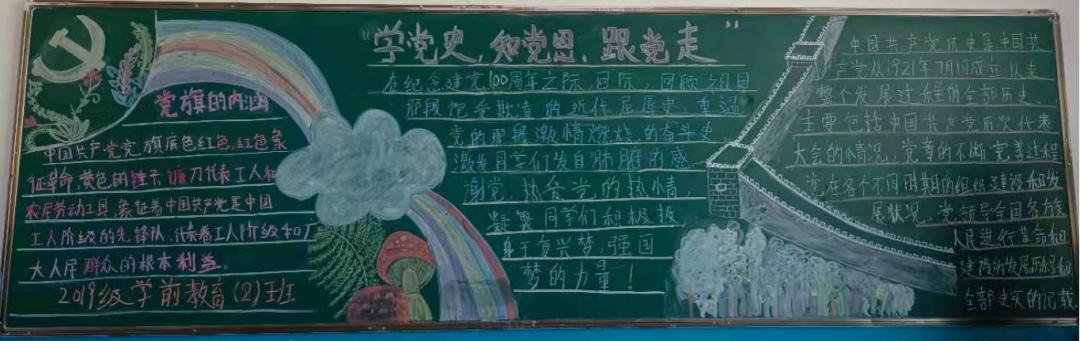 “学党史，知党恩，跟党走”
党旗的内涵
中国共产党党旗底色红色，红色象
征革命，黄色的锤子、镰刀代表工人和
农民劳动工具，象征着中国共产党是中国
工人阶级的先锋队，代表着工人阶级和广
大人民群众的根本利益。
2019级学前教育(2)班
在纪念建党100周年之际，回际，回顾之目
那段饱受欺凌的近代屈历史，重温
党的那段激情燃烧的奋斗史
激发同学们发自肺腑的感
身党，热爱党的热情，
凝聚同学们积极投
身于复兴梦，强国
梦的力量！
中国共产党历史是中国共
产党从1921年7月1日成立以来
整个发展过程的全部历史，
主要包括中国共产党历次代表
大会的情况，党章的不断完善过程
党在各个不同时期的组织建设和发
展状况，党领导全国各方族
人民进行革命和
建设的发展历程和
全部史实的记载